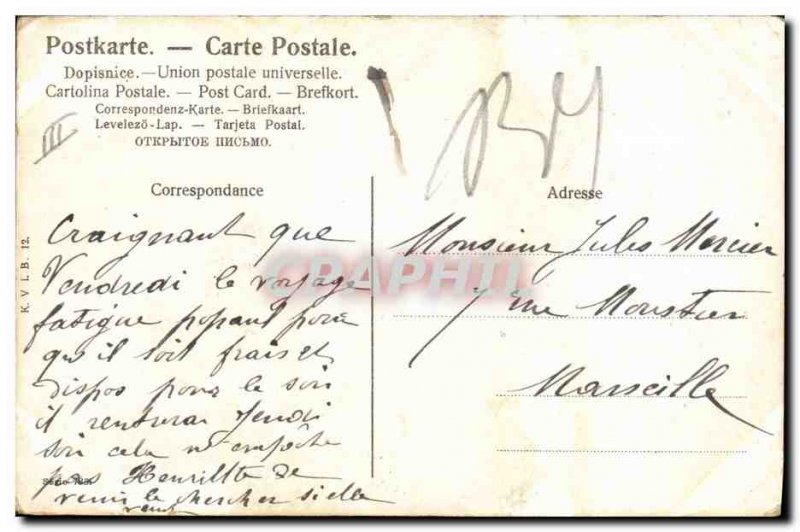 Postkarte. — Carte Postale.
Dopisnice.—Union postale universelle.
Cartolina Postale. — Post Card. — Brefkort.
Correspondenz-Karte. — Briefkaart.
Levelező-Lap. — Tarjeta Postal.
ОТКРЫТОЕ ПИСЬМО.
III
Correspondance
Craignant que
Vendredi le voyage
fatigue papa pour
qu'il soit frais et
dispos pour le soir
il rentrera Jeudi
soir cela n'empêche
pas Henriette de
venir le chercher si elle
veut
Adresse
Monsieur Jules Mercier
7 rue Moustier
Marseille
K. V. i. B. 12.
CPAPHIL